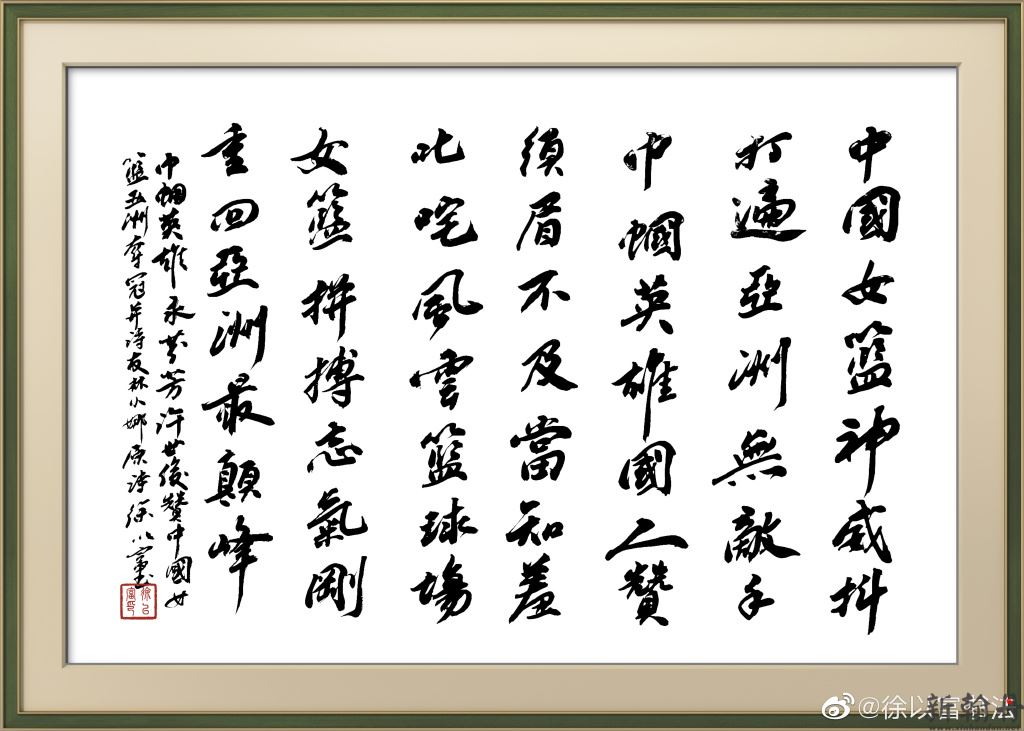 中國女籃神威抖
打遍亞洲無敵手
巾幗英雄國人贊
須眉不及當知羞
叱咤風雲籃球場
女籃拼搏志氣剛
重回亞洲最顛峰
巾幗英雄永芬芳許世後贊中國女
籃亚洲夺冠并诗友林小娜原诗徐以富书
徐以富印
@徐以富翰法